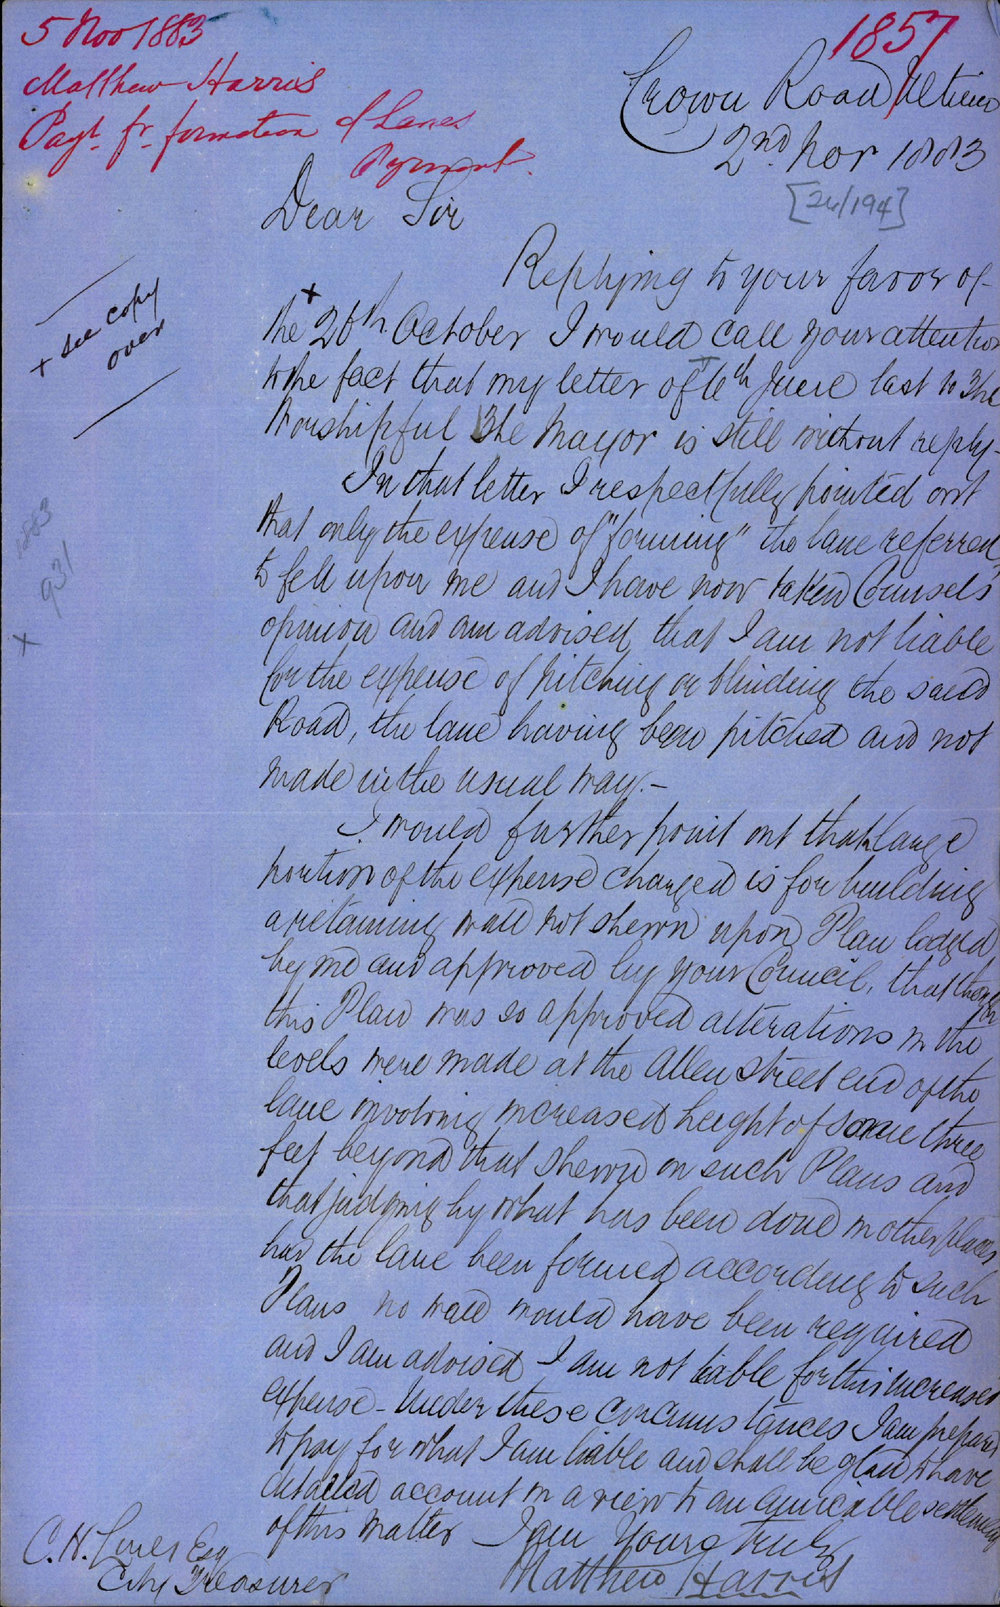 5 Nov 1883
Matthew Harris
Payt. fr. formation of Lanes
Pyrmont.
1857
Crown Road Ultimo
2nd Nov 1883
[26/194]
Dear Sir
Replying to your favor of
the 26th October I would call your attention
to the fact that my letter of 6th June last to The
Worshipful The Mayor is still without reply -
+ see copy
over
In that letter I respectfully pointed out
that only the expense of "forming" the lane referred
to fell upon me and I have now taken Counsels
opinion and am advised that I am not liable
for the expense of pitching or blinding the said
Road, the lane having been pitched and not
made in the usual way. -
1883
931
x
I would further point out that a large
portion of the expense charged is for building
a retaining wall not shewn upon Plan lodged
by me and approved by your Council, that though
this Plan was so approved alterations in the
levels were made at the Allen Street end of the
lane involving increased height of some three
feet beyond that shewn on such Plans and
that judging by what has been done in other places
had the lane been formed according to such
Plans no wall would have been required
and I am advised I am not liable for this increased
expense - Under these circumstances I am prepared
to pay for what I am liable and shall be glad to have
detailed account in a view to an amicable settlement
of this matter I am Yours truly
Matthew Harris
C. H. Esq
City Treasurer